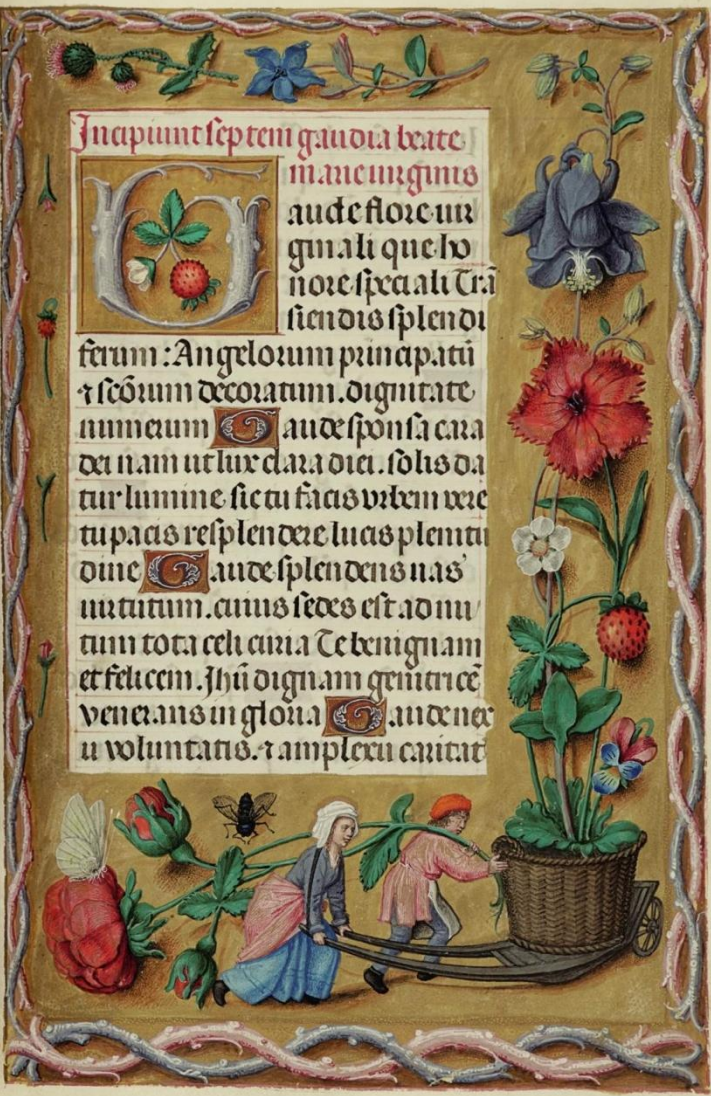 Incipiunt septem gaudia beate
marie virginis
Gaude flore vir
ginali que ho
nore speciali Trā
siendis splendi
ferum : Angelorum principatū
⁊ scōrum decoratum . dignitate
numerum Gaude sponsa cara
dei nam ut lux clara diei . solis da
tur lumine sic tu facis orbem vere
tu pacis resplendere lucis plenitu
dine Gaude splendens uas
uirtutum . cuius sedes est ad nu
tum tota celi curia Te benignam
et felicem . Jhū dignam genitricē
venerans in gloria Gaude nex
u voluntatis . ⁊ amplexu caritat